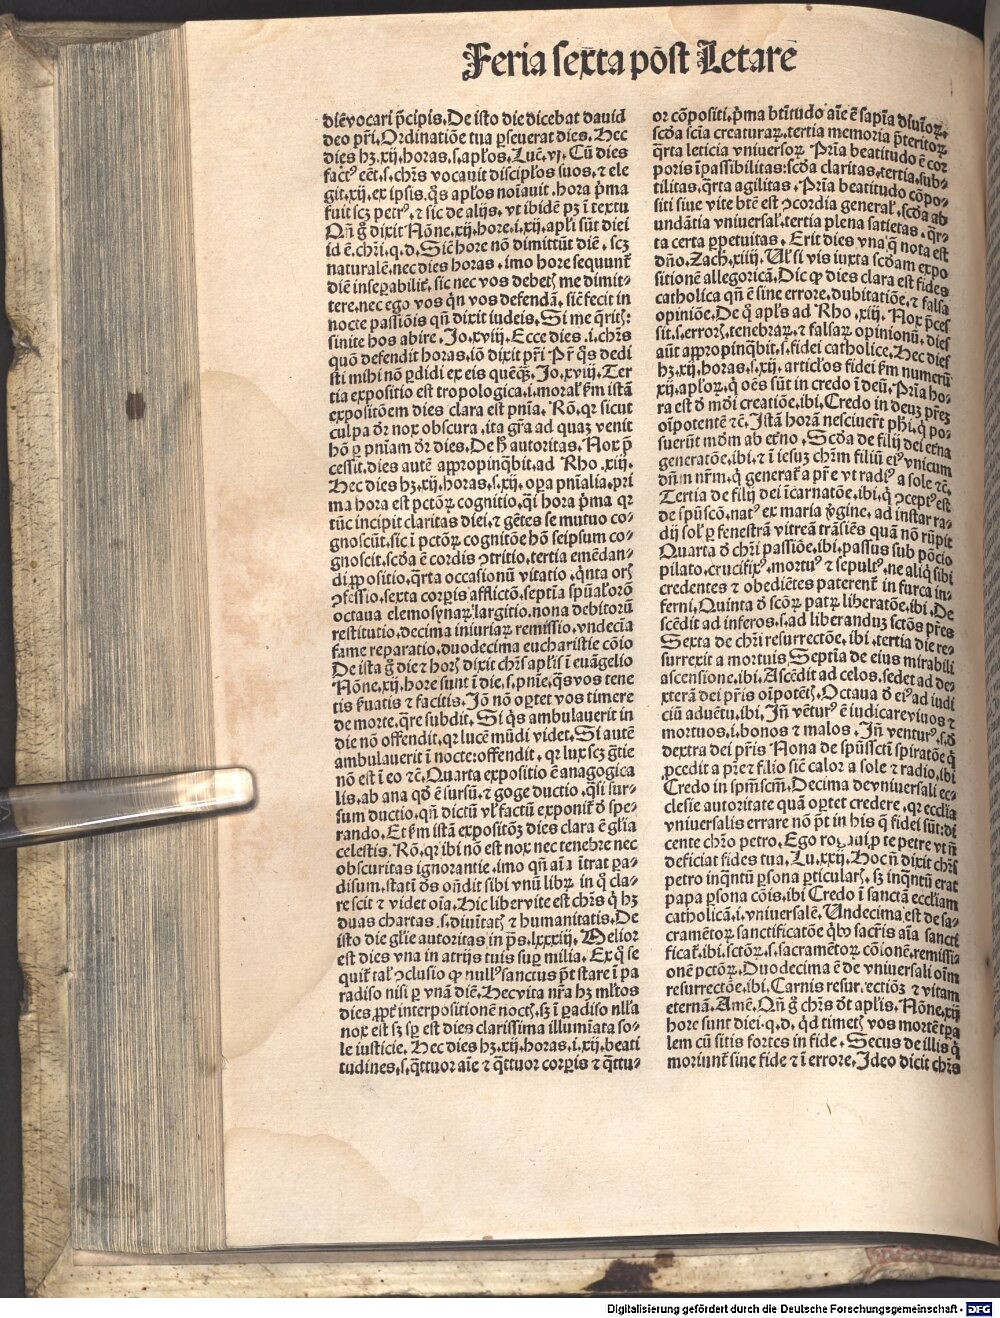 Feria sexta pōst Letarē
diē vocari p̄cipis. De isto die dicebat dauid
deo p̄ri. Ordinatiōe tua ꝑseuerat dies. Hec
dies hꝫ .xij. horas .s. apl̄os. Luc̄. vi. Cū dies
factꝰ eēt .s. chr̄s vocauit discipl̄os suos, ⁊ ele
git .xij. ex ipsis. q̄s apl̄os noīauit. hora p̄ma
fuit scꝫ petrꝰ, ⁊ sic de alijs. vt ibidē pꝫ ī textu
Qn̄ g̊ dixit Nōne .xij. hore .i. xij. apl̄i sūt diei
id ē. chr̄i. q. d. Sic̄ hore nō dimittūt diē. scꝫ
naturalē, nec dies horas. imo hore sequunt̄
diē inseꝑabilit̄. sic nec vos debetꝭ me dimit-
tere, nec ego vos q̄n vos defendā. sic̄ fecit in
nocte passiōis qn̄ dixit iudeis. Si me q̄ritꝭ:
sinite hos abire. Jo. xviij. Ecce dies .i. chr̄s
quō defendit horas, iō dixit p̄ri P̄r q̄s dedi
sti mihi nō ꝑdidi ex eis quēqꝫ. Jo. xviij. Ter
tia expositio est tropologica .i. moral̄ ẜm istā
expositōem dies clara est pn̄ia. Rō. qꝛ sicut
culpa dr̄ nox obscura. ita gr̄a ad quaꝫ venit
hō ꝑ pn̄iam dr̄ dies. De h̄ autoritas. Nox p̄
cessit. dies autē appropinq̄bit. ad Rho. xiij.
Hec dies hꝫ .xij. horas .s. xij. oꝑa pn̄ialia. pri
ma hora est pctōꝝ cognitio, q̄i hora p̄ma qꝛ
tūc incipit claritas diei, ⁊ gētes se mutuo co-
gnoscūt. sic ī pctōꝝ cognitōe hō seipsum co-
gnoscit. scd̄a ē cordis ꝯtritio. tertia emēdan-
di ꝓpositio. q̄rta occasionū vitatio. q̄nta orꝭ
ꝯfessio. sexta corꝑis afflictō. septīa spūaloꝝ
octaua elemosynaꝝ largitio. nona debitorū
restitutio. decima iniuriaꝝ remissio. vndecīa
fame reparatio. duodecima eucharistie cōio
De ista g̊ die ⁊ horꝭ dixit chr̄s apl̄is ī euāgelio
Nōne .xij. hore sunt ī die .s. pn̄ie, q̄s vos tene
tis ẜuatis ⁊ facitis. Jō nō oꝑtet vos timere
de morte. q̄re subdit. Si q̄s ambulauerit in
die nō offendit. qꝛ lucē mūdi videt. Si autē
ambulauerit ī nocte: offendit. qꝛ lux scꝫ gr̄tie
nō est ī eo ⁊c̄. Quarta expositio ē anagogica
lis. ab ana qd̄ ē sursū, ⁊ goge ductio. q̄si sur-
sum ductio. qn̄ dictū vl̄ factū exponit̄ d̄ spe-
rando. Et ẜm istā expositōꝫ dies clara ē gl̄ia
celestis. Rō. qꝛ ibi nō est nox nec tenebre nec
obscuritas ignorantie. imo qn̄ aīa īntrat ꝑa-
disum. statī d̄s on̄dit sibi vnū librꝝ in q̊ cla-
re scit ⁊ videt oīa. Hic liber vite est chr̄s q̊ hꝫ
duas chartas .s. diuītatꝭ ⁊ humanitatis. De
isto die gl̄ie autoritas in p̄s. lxxxiij. Melior
est dies vna in atrijs tuis suꝑ milia. Ex q̊ se
quit̄ tal̄ ꝯclusio ꝙ nullꝰ sanctus p̄t stare ī pa
radiso nisi ꝑ vnā diē. Hec vita nr̄a hꝫ ml̄tos
dies, ꝓpt̄ interpositionē noctꝭ, sꝫ ī ꝑadiso nll̄a
nox est sꝫ sꝑ est dies clarissima illumīata so-
le iusticie. Hec dies hꝫ .xij. horas .i. xij. beati
tudines .s. q̄ttuor aīe ⁊ q̄ttuor corꝑis ⁊ q̄ttu-
or cōpositi. p̄ma btītudo aīe ē sapīa diuīoꝝ.
scd̄a scīa creaturaꝝ. tertia memoria p̄teritoꝝ
q̄rta leticia vniuersoꝝ. Prīa beatitudo ē cor
poris īpassibilitas: scd̄a claritas. tertia sub-
tilitas. q̄rta agilitas. Prīa beatitudo cōpo-
siti siue vite btē est ꝯcordia general̄. scd̄a ab
undātia vniuersal̄. tertia plena satietas. q̄r-
ta certa ꝑpetuitas. Erit dies vna q̄ nota est
dn̄o. Zach. xiiij. Ul̄ si vis iuxta scd̄am expo
sitionē allegoricā. Dic ꝙ dies clara est fides
catholica qn̄ ē sine errore, dubitatiōe, ⁊ falsa
opiniōe. De q̊ apl̄s ad Rho. xiij. Nox p̄ces
sit .s. errorꝭ, tenebraꝝ, ⁊ falsaꝝ opinionū. dies
aūt appropinq̄bit .s. fidei catholice. Hec dies
hꝫ .xij. horas .s. xij. articl̄os fidei ẜm numerū
xij. apl̄oꝝ. q̊ oēs sūt in credo ī deū. Prīa ho-
ra est d̄ mūdi creatiōe. ibi. Credo in deuꝫ p̄reꝫ
oīpotentē ⁊c̄. Jstā horā nesciuer̄t ph̄i. q̊ po-
suerūt mūdm ab et̄no. Scd̄a de filij dei et̄na
generatōe. ibi. ⁊ ī iesuꝫ chr̄m filiū eiꝰ vnicum
dn̄m nr̄m. q̊ generat̄ a pr̄e vt radiꝰ a sole ⁊c̄.
Tertia de filij dei īcarnatōe. ibi. q̊ ꝯceptꝰ est
de spūscō. natꝰ ex maria v̄gine. ad instar ra-
dij sol̄ ꝑ fenestrā vitreā trāsiēs quā nō rūpit
Quarta d̄ chr̄i passiōe. ibi. passus sub pōcio
pilato. crucifixꝰ. mortuꝰ ⁊ sepultꝰ. ne aliq̊ sibi
credentes ⁊ obediētes paterent̄ in furca in-
ferni. Quinta d̄ scōꝝ patꝝ liberatōe. ibi. De
scēdit ad inferos .s. ad liberanduꝫ sctōs p̄res
Sexta de chr̄i resurrectōe. ibi. tertia die re-
surrexit a mortuis. Septīa de eius mirabili
ascensione. ibi. Ascēdit ad celos. sedet ad de-
xterā dei p̄ris oīpotētꝭ. Octaua d̄ eiꝰ ad iudi
ciū aduētu. ibi. Jn̄ vēturꝰ ē iudicare viuos ⁊
mortuos .i. bonos ⁊ malos. Jn̄ venturꝰ .s. d̄
dextra dei p̄ris Nona de spūssctī spiratōe q̊
ꝓcedit a pr̄e ⁊ filio sic̄ calor a sole ⁊ radio. ibi
Credo in spm̄scm̄. Decima de vniuersali ec-
clesie autoritate quā oꝑtet credere. qꝛ ecclīa
vniuersalis errare nō p̄t in his q̄ fidei sūt: di
cente chr̄o petro. Ego rogaui ꝑ te petre vt n̄
deficiat fides tua. Lu. xxij. Hoc n̄ dixit chr̄s
petro inq̄ntū ꝑsona ꝑticularꝭ. sꝫ inq̄ntū erat
papa ꝑsona cōis. ibi Credo ī sanctā ecclīam
catholicā .i. vniuersalē. Undecima est de sa-
cramētoꝝ sanctificatōe q̊bꝰ sacr̄is aīa sancti
ficat̄. ibi. sctōꝝ .s. sacramētoꝝ cōionē. remissi-
onē pctōꝝ. Duodecima ē de vniuersali oīm
resurrectōe. ibi. Carnis resurrectiōꝫ ⁊ vitam
eternā. Amē. Qn̄ g̊ chr̄s dr̄t apl̄is. Nōne .xij
hore sunt diei. q. d. q̊d timetꝭ vos mortē tꝑa
lem cū sitis fortes in fide. Secus de illis q̊
moriunt̄ sine fide ⁊ ī errore. Jdeo dicit chr̄s
Digitalisierung gefördert durch die Deutsche Forschungsgemeinschaft - DFG